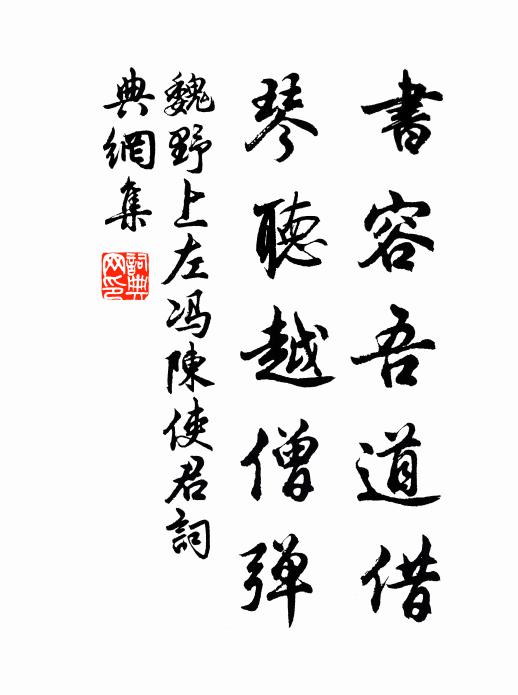 書容吾道借
琴聽越僧弹
魏野上左冯陳使君詞
典網集
詞典网印